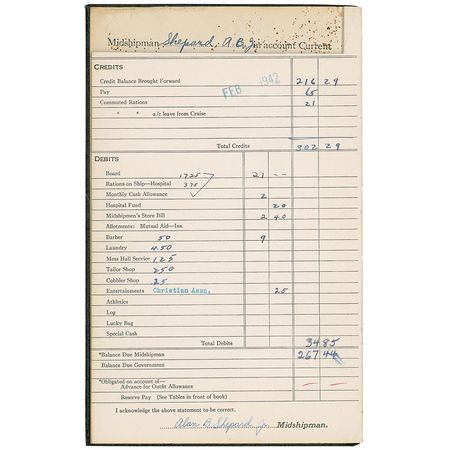 Midshipman Shepard, A. B. Jr. in account Current
CREDITS
Credit Balance Brought Forward 216 29
FEB 1942
Pay 65
Commuted Rations 21
" " a/c leave from Cruise
Total Credits 302 29
DEBITS
Board 1725 21 --
Rations on Ship—Hospital 375
Monthly Cash Allowance 2
Hospital Fund 20
Midshipmen's Store Bill 2 40
Allotments: Mutual Aid—Ins.
Barber 50 9
Laundry 4.50
Mess Hall Service 1.25
Tailor Shop 250
Cobbler Shop .25
Entertainments Christian Assn. 25
Athletics
Log
Lucky Bag
Special Cash
Total Debits 34 85
*Balance Due Midshipman 267 44
Balance Due Government
*Obligated on account of—
Advance for Outfit Allowance — —
Reserve Pay (See Tables in front of book)
I acknowledge the above statement to be correct.
Alan B. Shepard Jr. Midshipman.